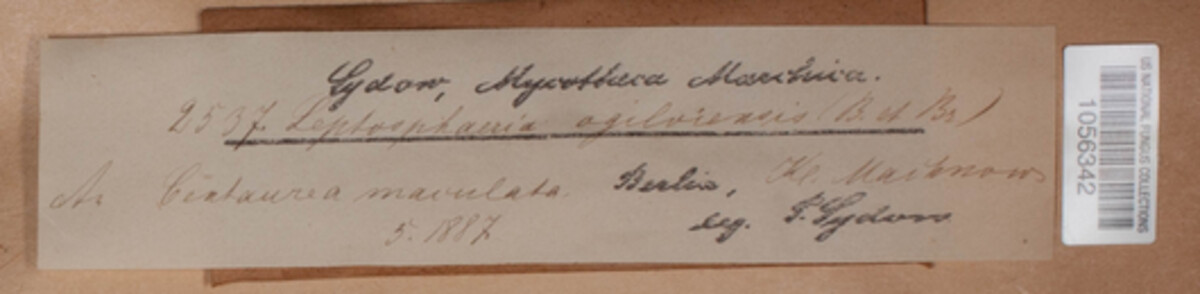 Sydow, Mycotheca Marchica.
2537. Leptosphaeria ogilviensis (B. et Br)
An Centaurea maculata. Berlin, Kl. Machnow
5. 1887. leg. P. Sydow
US NATIONAL FUNGUS COLLECTIONS
1056342